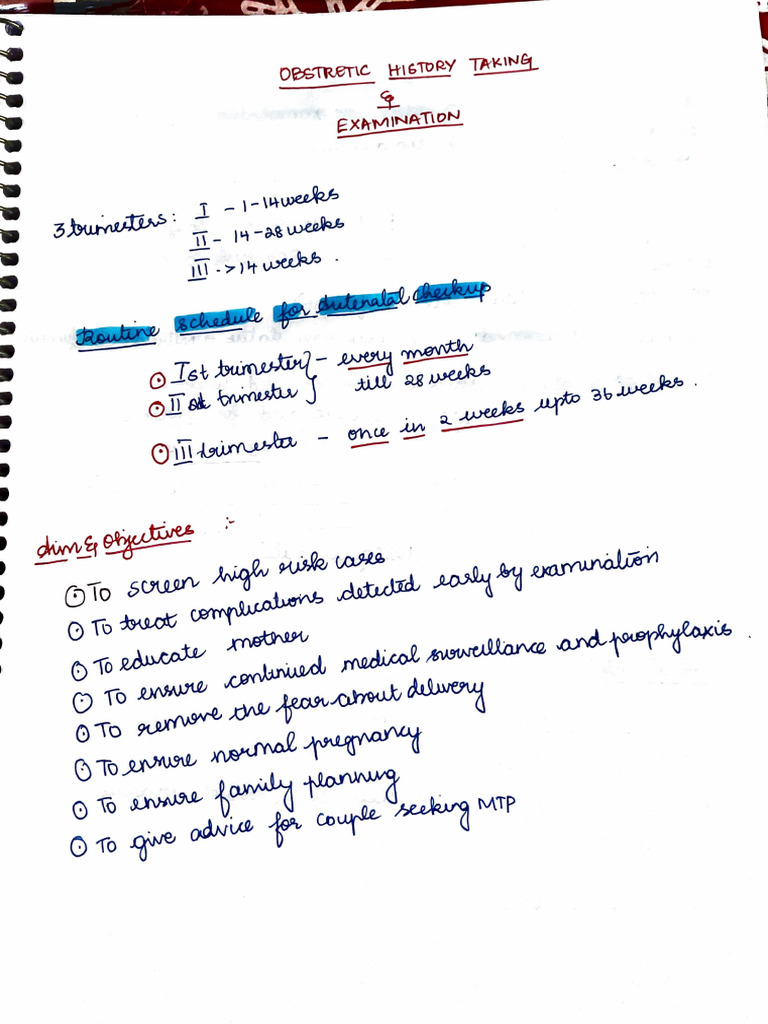 OBSTRETIC HISTORY TAKING
&
EXAMINATION
3 trimesters: I - 1-14 weeks
II - 14-28 weeks
III - >14 weeks.
Routine schedule for Antenatal checkup
Ist trimester } - every month
II trimester } till 28 weeks
III trimester - once in 2 weeks upto 36 weeks.
Aim & Objectives :-
To screen high risk cases
To treat complications detected early by examination
To educate mother
To ensure continued medical surveillance and prophylaxis.
To remove the fear about delivery
To ensure normal pregnancy
To ensure family planning
To give advice for couple seeking MTP